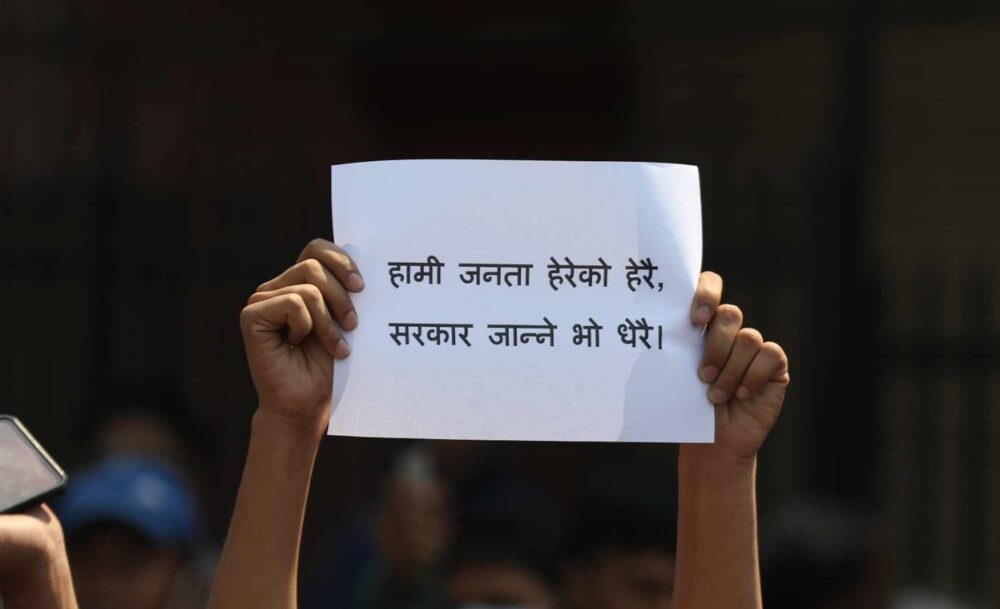 हामी जनता हेरेको हेरै,
सरकार जान्ने भो धेरै।